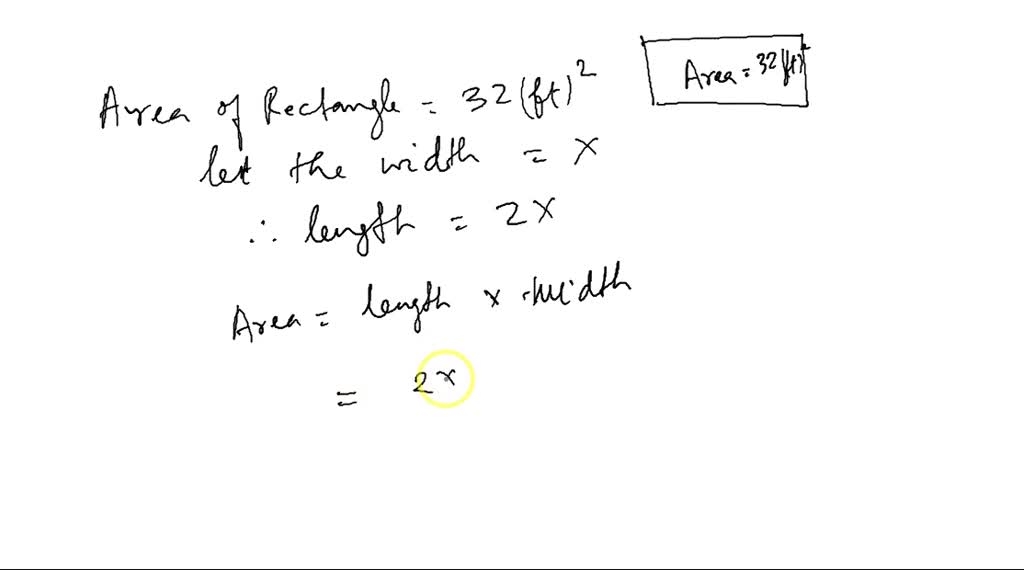 Area of Rectangle = 32 (ft)²
Area = 32 (ft)²
let the width = x
∴ length = 2x
Area = length x width
= 2x